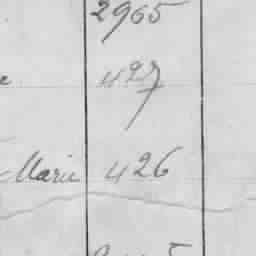 2965
427
Marie 426